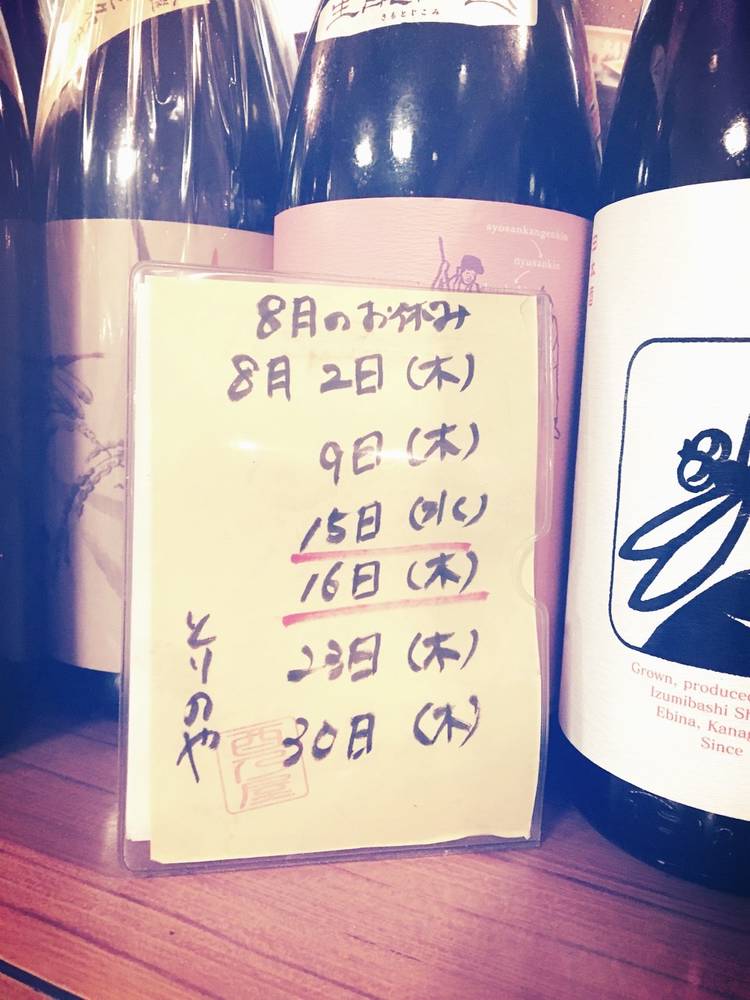 きもとじこみ
syosankangenkin
nyusankin
8月のお休み
8月 2日 (木)
9日 (木)
15日 (水)
16日 (木)
23日 (木)
30日 (木)
とりのや
Grown, produced
Izumibashi Sh
Ebina, Kana
Since